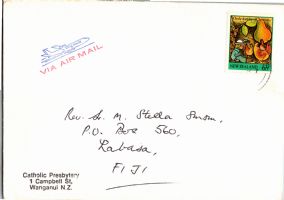 VIA AIR MAIL
NEW ZEALAND
Rev. Sr. M. Stella
P.O. Box 560,
Labasa,
FIJI
Catholic Presbytery
1 Campbell St,
Wanganui N.Z.